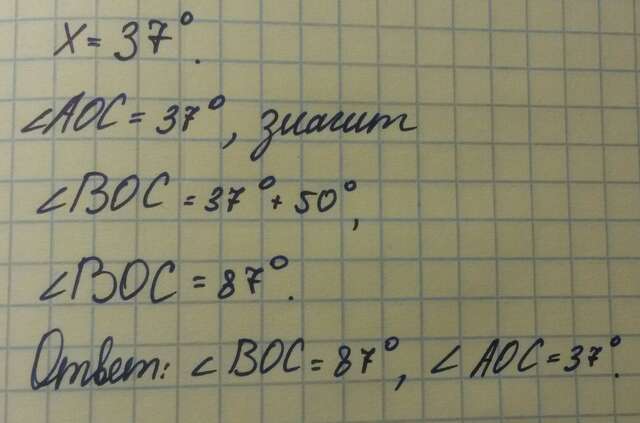 X = 37°.
∠AOC = 37°, значит
∠BOC = 37° + 50°,
∠BOC = 87°.
Ответ: ∠BOC = 87°, ∠AOC = 37°.